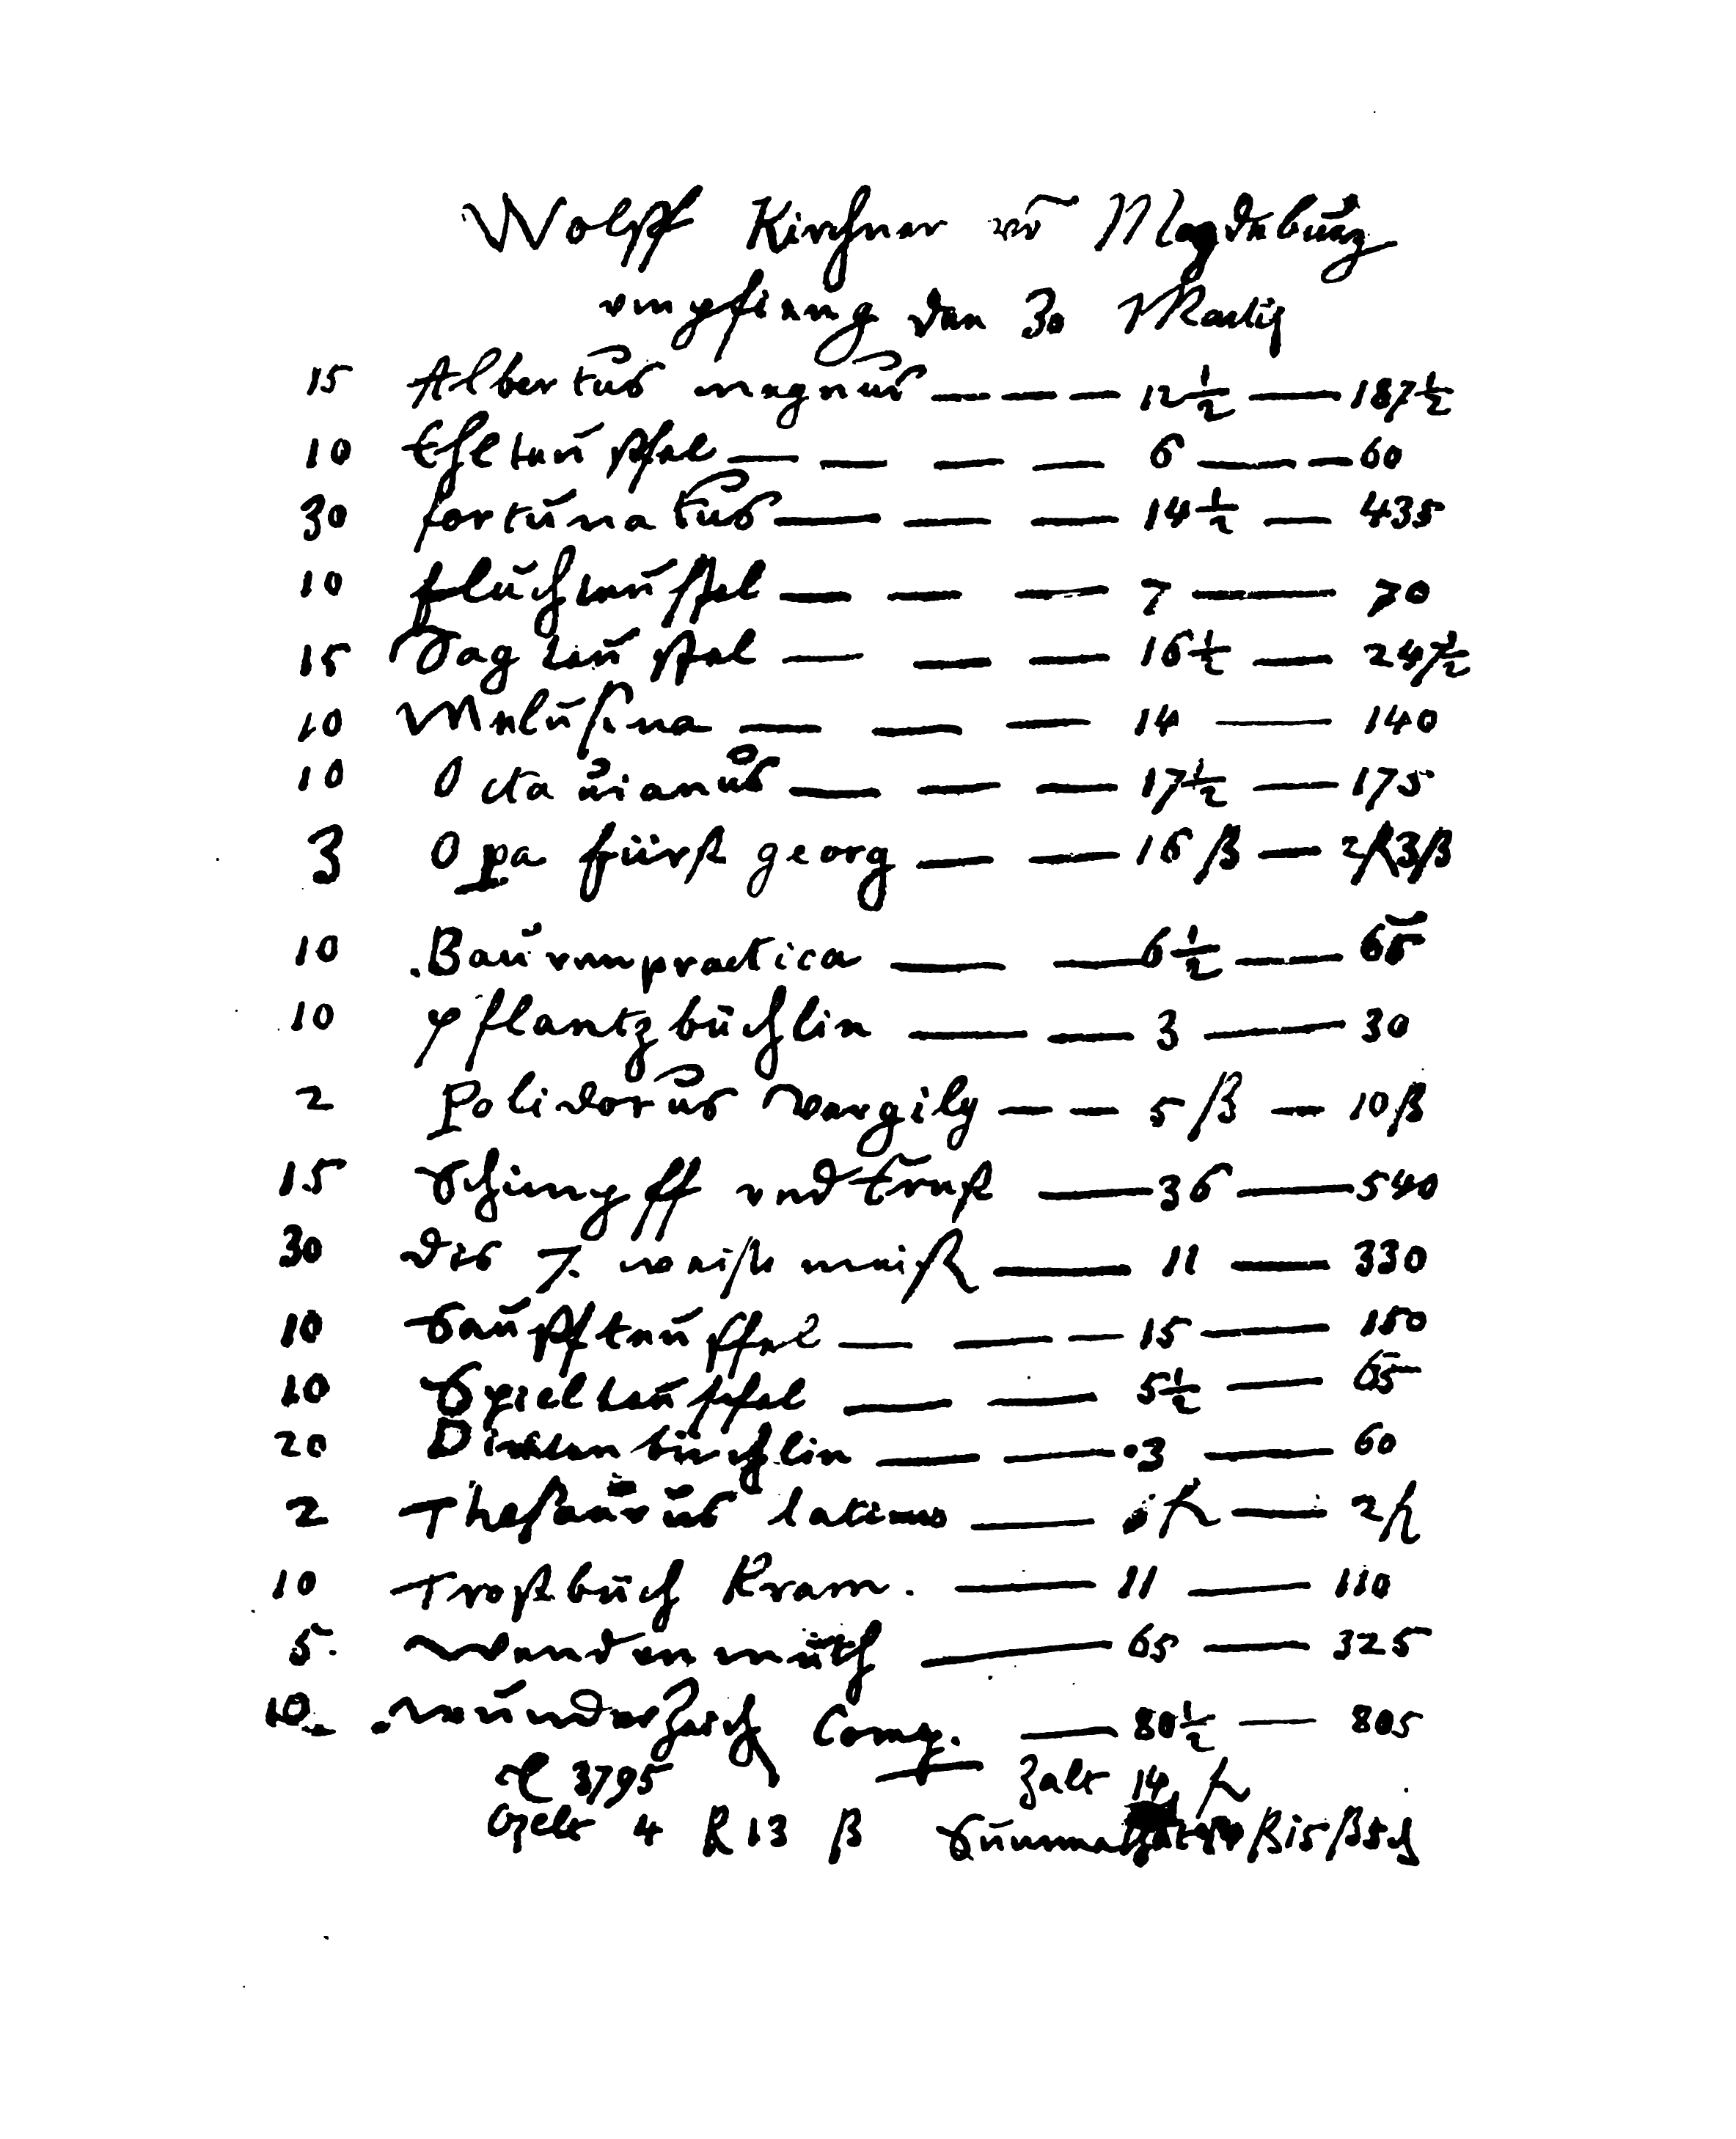 Wolff Kirchner vō Magdeburg
empfieng den 30 Martij
15 Albertus magnus — — — 12½ — 187½
10 Eheteuffel — — — — 6 — — 60
30 fortunatus — — — 14½ — 435
10 fluchteuffel — — — 7 — 70
15 Jagteuffel — — — 16½ — 247½
10 Melusina — — — 14 — 140
10 Octauianus — — — 17½ — 175
3 Opa fürst georg — — 16 ß — 2 fl 3 ß
10 Baurenpractica — — 6½ — 65
10 pflantzbüchlin — — 3 — 30
2 Polidorus Vergily — — 5 ß — 10 ß
15 Schimpff vnd Ernst — 36 — 540
30 die 7. weise meist — 11 — 330
10 Sauffteuffel — — — 15 — 150
10 Spielteuffel — — 5½ — 65
20 Dintenbüchlin — — 3 — 60
2 Thesaurus latinus — 1 fl — 2 fl
10 Trostbuch Kram. — 11 — 110
5. Wendenmuth — 65 — 325
10 wunderzeich Comp. — 80½ — 805
3795 zalt 14 fl
gelt 4 fl 13 ß Summa 15 ß 5 d